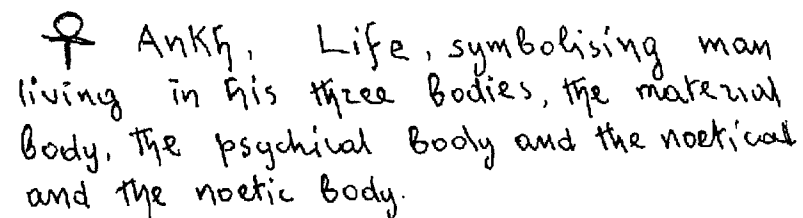 ☥ Ankh, Life, symbolising man
living in his three bodies, the material
body, the psychical body and the noetical
and the noetic body.